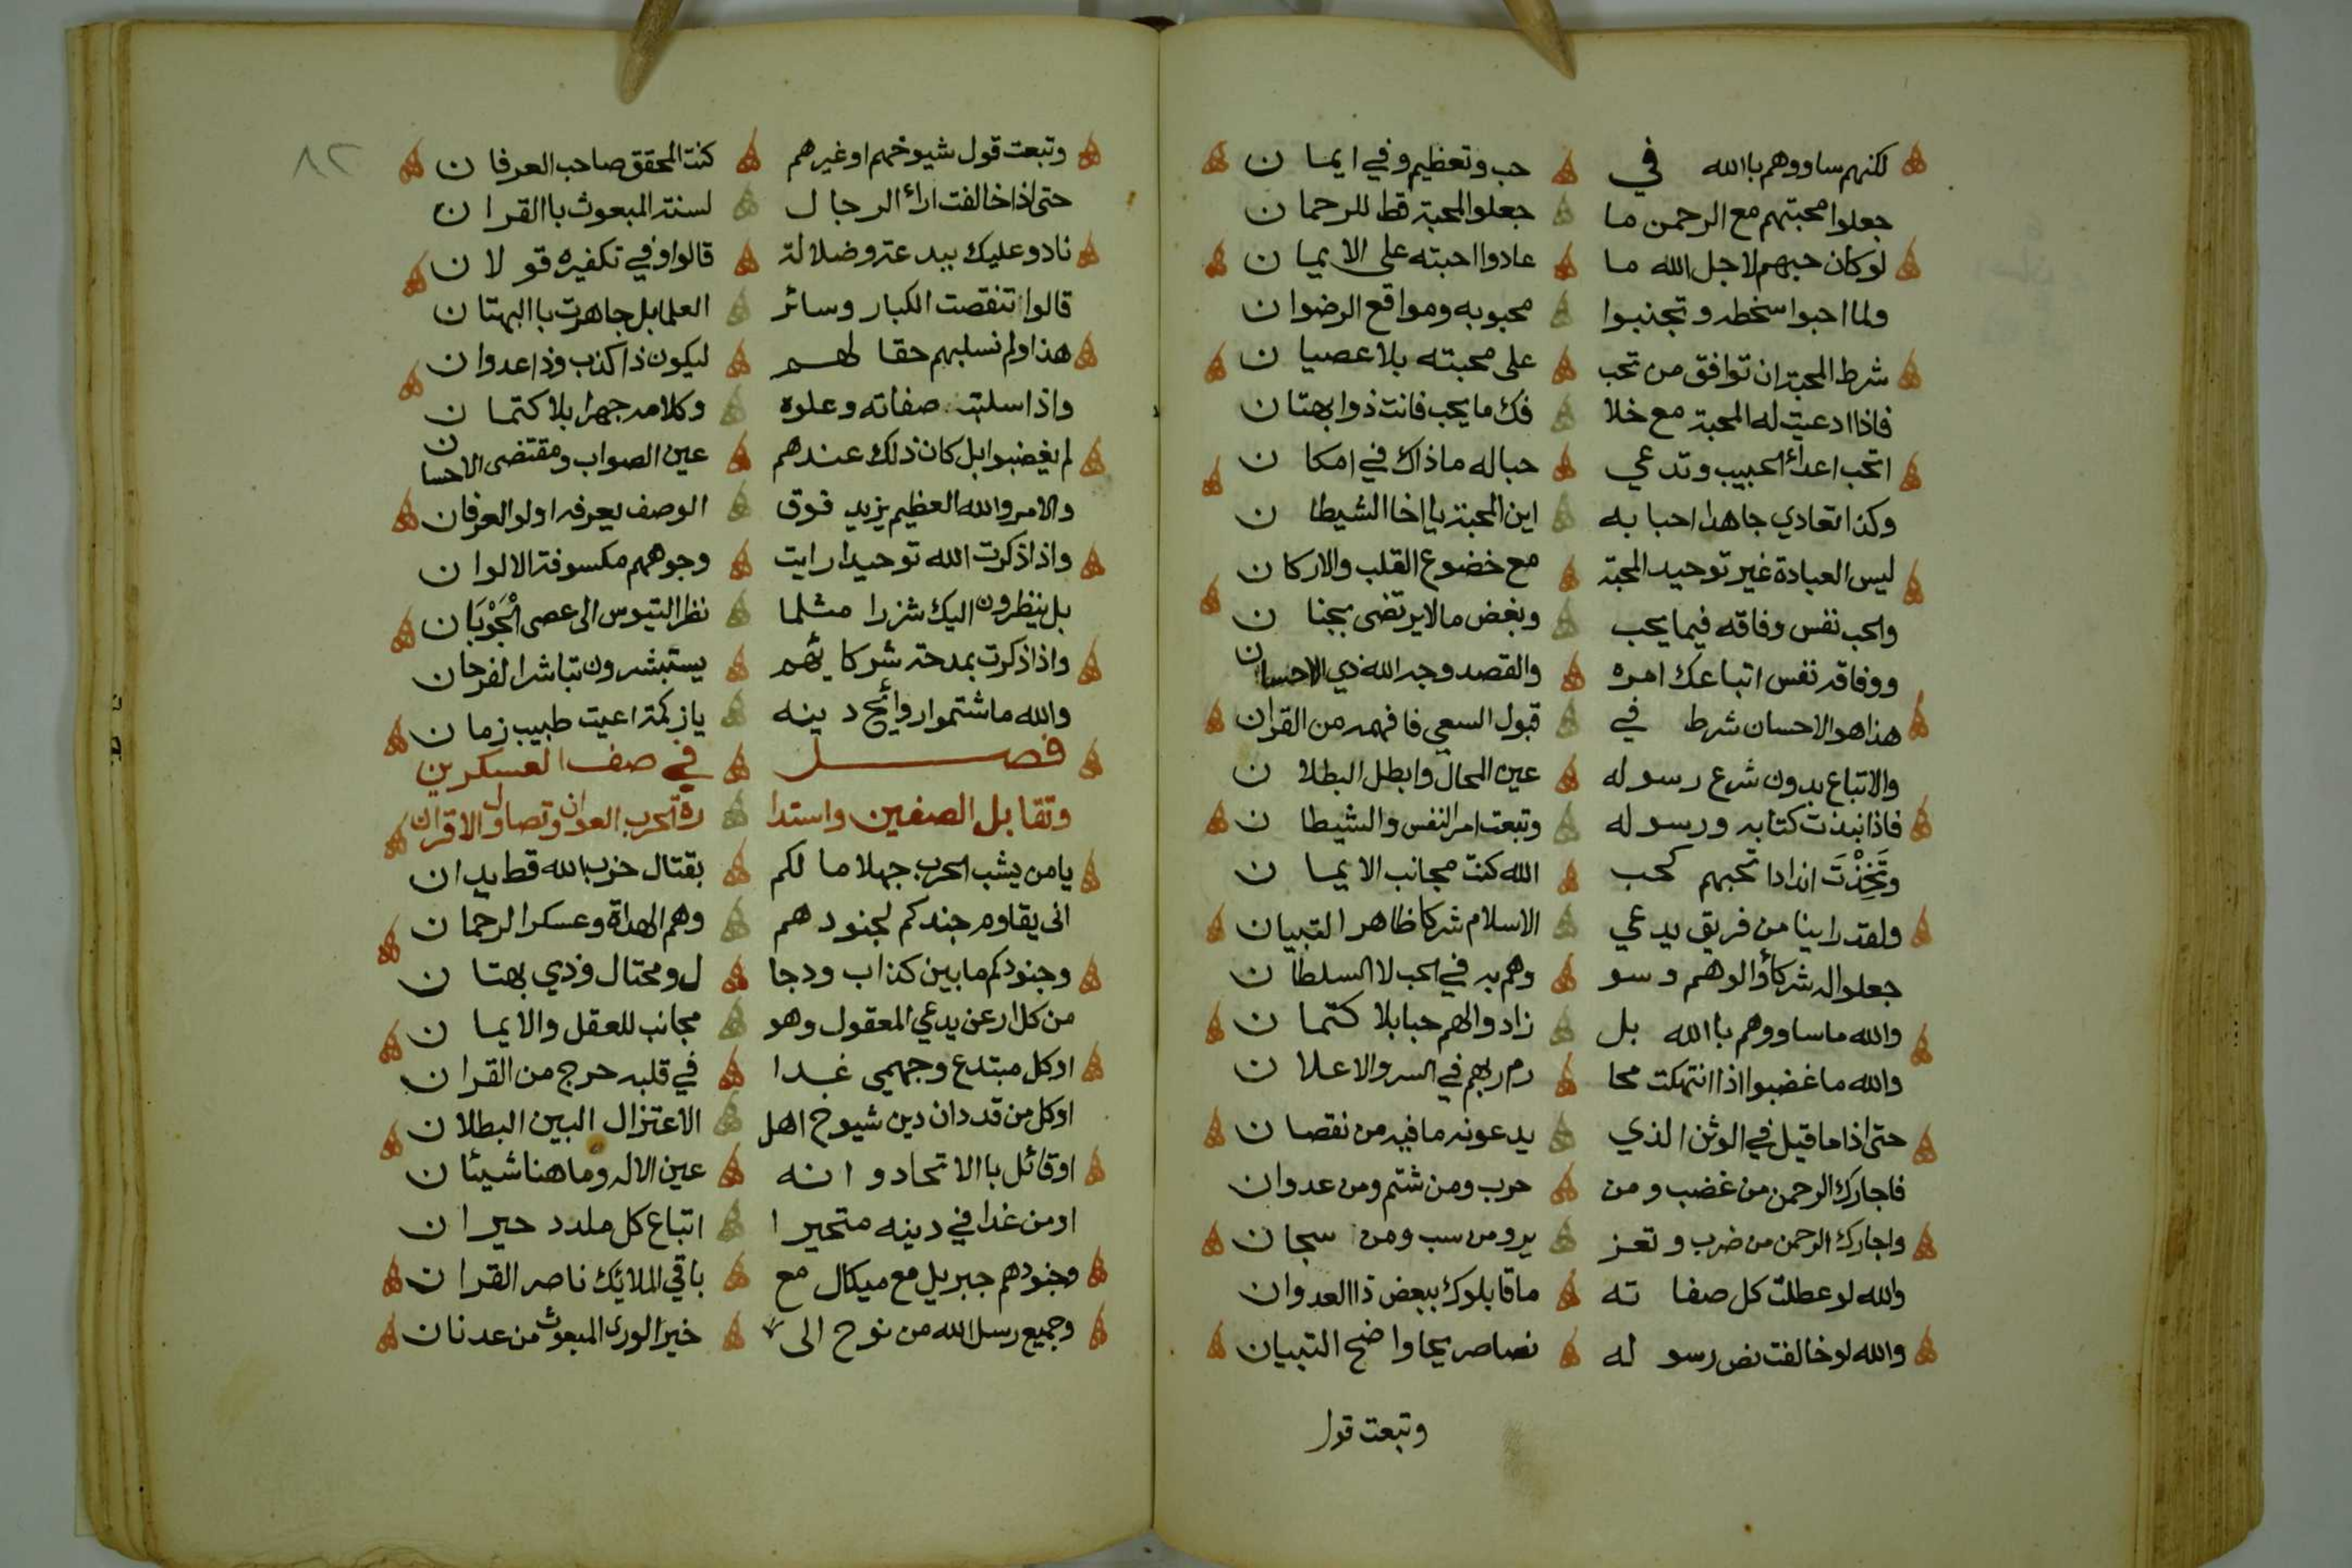 لكنهم ساووهم باالله في حب وتعظيم وفي ايمان
جعلوا محبتهم مع الرحمن ما جعلوا المحبة قط للرحمان
لو كان حبهم لاجل الله ما عادوا احبته على الايمان
ولما احبوا سخطه وتجنبوا محبوبه ومواقع الرضوان
شرط المحبة ان توافق من تحب على محبته بلا عصيان
فاذا ادعيت له المحبة مع خلا فك ما يحب فانت ذوا بهتان
اتحب اعداء الحبيب وتدعي حبا له ماذاك في امكان
وكذا تعادي جاهدا احبابه اين المحبة يا اخا الشيطان
ليس العبادة غير توحيد المحبة مع خضوع القلب والاركان
والحب نفس وفاقه فيما يحب وبغض مالا يرتضى بجنان
ووفاقه نفس اتباعك امره والقصد وجه الله ذي الاحسان
هذا هو الاحسان شرط في قبول السعي فافهمه من القران
والاتباع بدون شرع رسوله عين المحال وابطل البطلان
فاذا نبذت كتابه ورسوله وتبعت امر النفس والشيطان
وَتَخِذْتَ اندادا تحبهم كحب الله كنت مجانب الايمان
ولقد راينا من فريق يدعي الاسلام شركا ظاهر التبيان
جعلوا له شركاء والوهم وسو وهم به في الحب لا السلطان
والله ما ساووهم باالله بل زادوا لهم حبا بلا كتمان
والله ما غضبوا اذا انتهكت محا رم ربهم في السر والاعلان
حتى اذا ما قيل في الوثن الذي يدعونه ما فيه من نقصان
فاجارك الرحمن من غضب ومن حرب ومن شتم ومن عدوان
واجارك الرحمن من ضرب وتعز ير ومن سب ومن سجان
والله لو عطلت كل صفاته ما قابلوك ببعض ذا العدوان
والله لو خالفت نص رسوله نصا صريحا واضح التبيان
وتبعت قول
٨٢
وتبعت قول شيوخهم او غيرهم كنت المحقق صاحب العرفان
حتى اذا خالفت اراء الرجال لسنة المبعوث باالقران
نادو عليك ببدعة وضلالة قالوا وفي تكفيره قولان
قالوا تنقصت الكبار وسائر العلما بل جاهرت باالبهتان
هذا ولم نسلبهم حقا لهم ليكون ذا كذب وذا عدوان
واذا سلبت صفاته وعلوه وكلامه جهرا بلا كتمان
لم يغضبوا بل كان ذلك عندهم عين الصواب ومقتضى الاحسان
والامر والله العظيم يزيد فوق الوصف يعرفه اولو العرفان
واذا ذكرت الله توحيدا رايت وجوههم مكسوفة الالوان
بل ينظرون اليك شزرا مثلما نظر التيوس الى عصى الْجَوْبَان
واذا ذكرت بمدحة شركائهم يستبشرون تباشر الفرحان
والله ما شتموا روائح دينه يا زكمة اعيت طبيب زمان
فصل في صف العسكرين
وتقابل الصفين واستدا رة الحرب العوان وتصاول الاقران
يا من يشب الحرب جهلا ما لكم بقتال حزب الله قط يدان
انى يقاوم جندكم لجنودهم وهم الهداة وعسكر الرحمان
وجنودكم ما بين كذاب ودجا ل ومحتال وذي بهتان
من كل ارعن يدعي المعقول وهو مجانب للعقل والايمان
او كل مبتدع وجهمي غدا في قلبه حرج من القران
او كل من قد دان دين شيوخ اهل الاعتزال البين البطلان
او قائل باالاتحاد وانه عين الاله وما هنا شيئان
او من غدا في دينه متحيرا اتباع كل ملدد حيران
وجنودهم جبريل مع ميكال مع باقي الملائك ناصر القران
وجميع رسل الله من نوح الى خير الورى المبعوث من عدنان